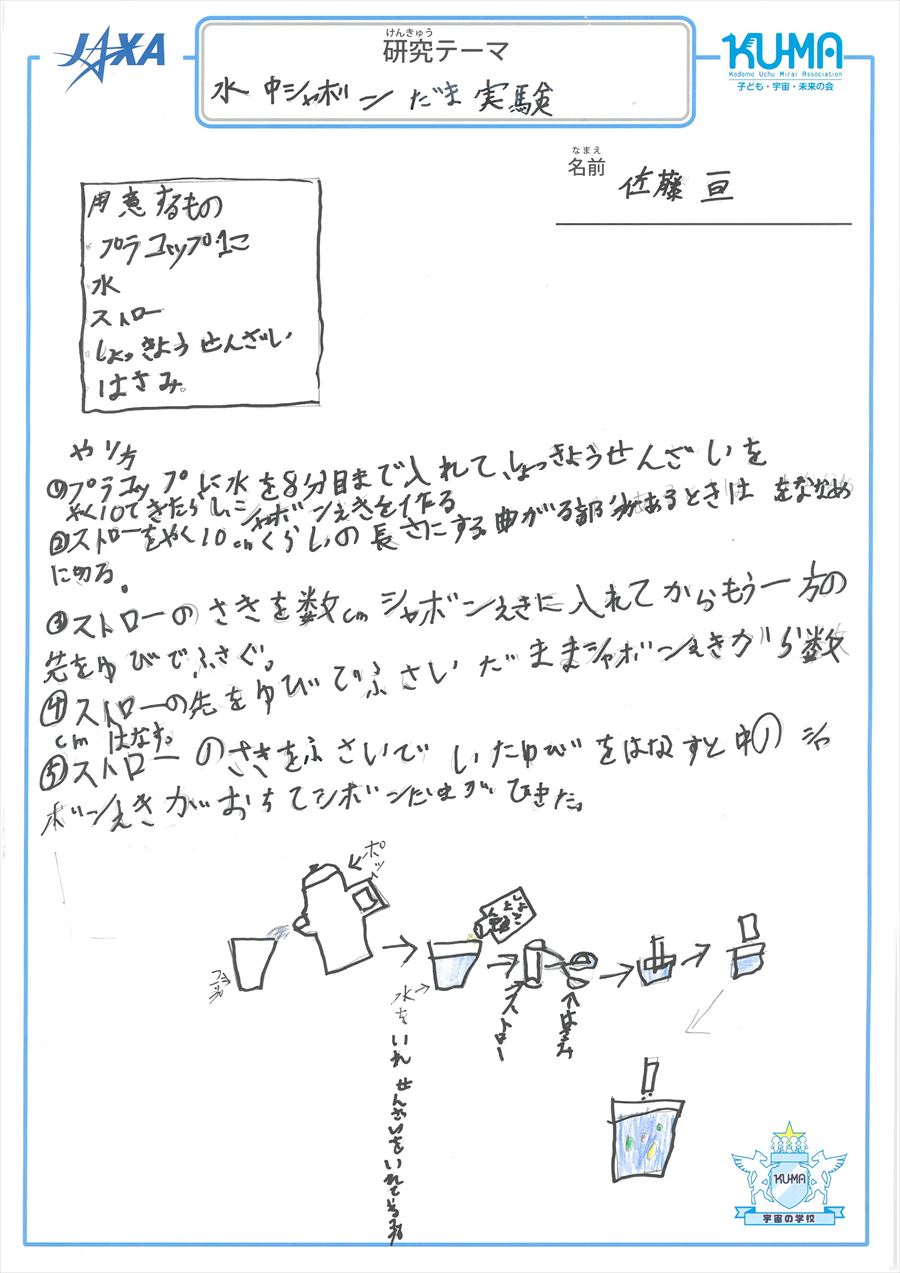 JAXA
けんきゅう
研究テーマ
水中シャボンだま実験
KU-MA
Kodomo Uchu Mirai Association
子ども・宇宙・未来の会
なまえ
名前
佐藤 亘
用意するもの
プラコップ1こ
水
ストロー
しょっきようせんざい
はさみ。
やり方
①プラコップに水を8分目まで入れて、しょっきようせんざいを
やく10てきたらしシャボンえきを作る
②ストローをやく10cmくらいの長さにする。曲がる部分があるときは をななめ
に切る。
③ストローのさきを数cmシャボンえきに入れてからもう一方の
先をゆびでふさぐ。
④ストローの先をゆびでふさいだままシャボンえきがら数
cmはなす。
⑤ストローのさきをふさいでいたゆびをはなすと中のシャ
ボンえきがおちてシボンだまができた。
ポット
水をいれ せんざいをいれてまぜる
ストロー
はさみ
KU-MA
宇宙の学校